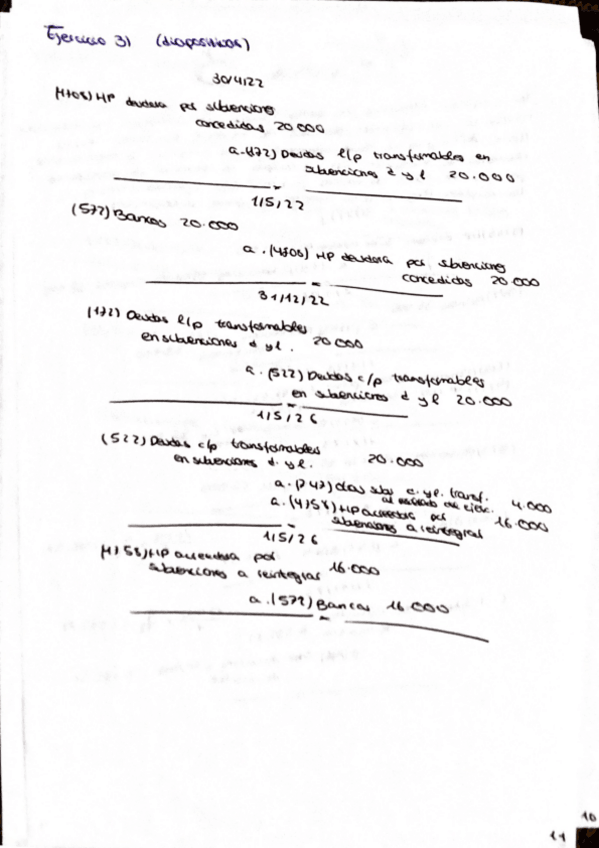 Ejercicio 3) (diapositivas)
30/4/22
(4708) HP deudora por subvenciones
concedidas 20.000
a.(172) Deudas l/p transformables en
subvenciones d y l 20.000
1/5/22
(572) Bancos 20.000
a. (4708) HP deudora por subvenciones
concedidas 20.000
31/12/22
(172) Deudas l/p transformables
en subvenciones d y l. 20.000
a. (522) Deudas c/p transformables
en subvenciones d y l 20.000
1/5/26
(522) Deudas c/p transformables
en subvenciones d. y l. 20.000
a. (747) otras subv. transf.
al resultado del ejerc. 4.000
a. (4758) HP acreedora por
subvenciones a reintegrar 16.000
1/5/26
(4758) HP acreedora por
subvenciones a reintegrar 16.000
a. (572) Bancos 16.000
10
11